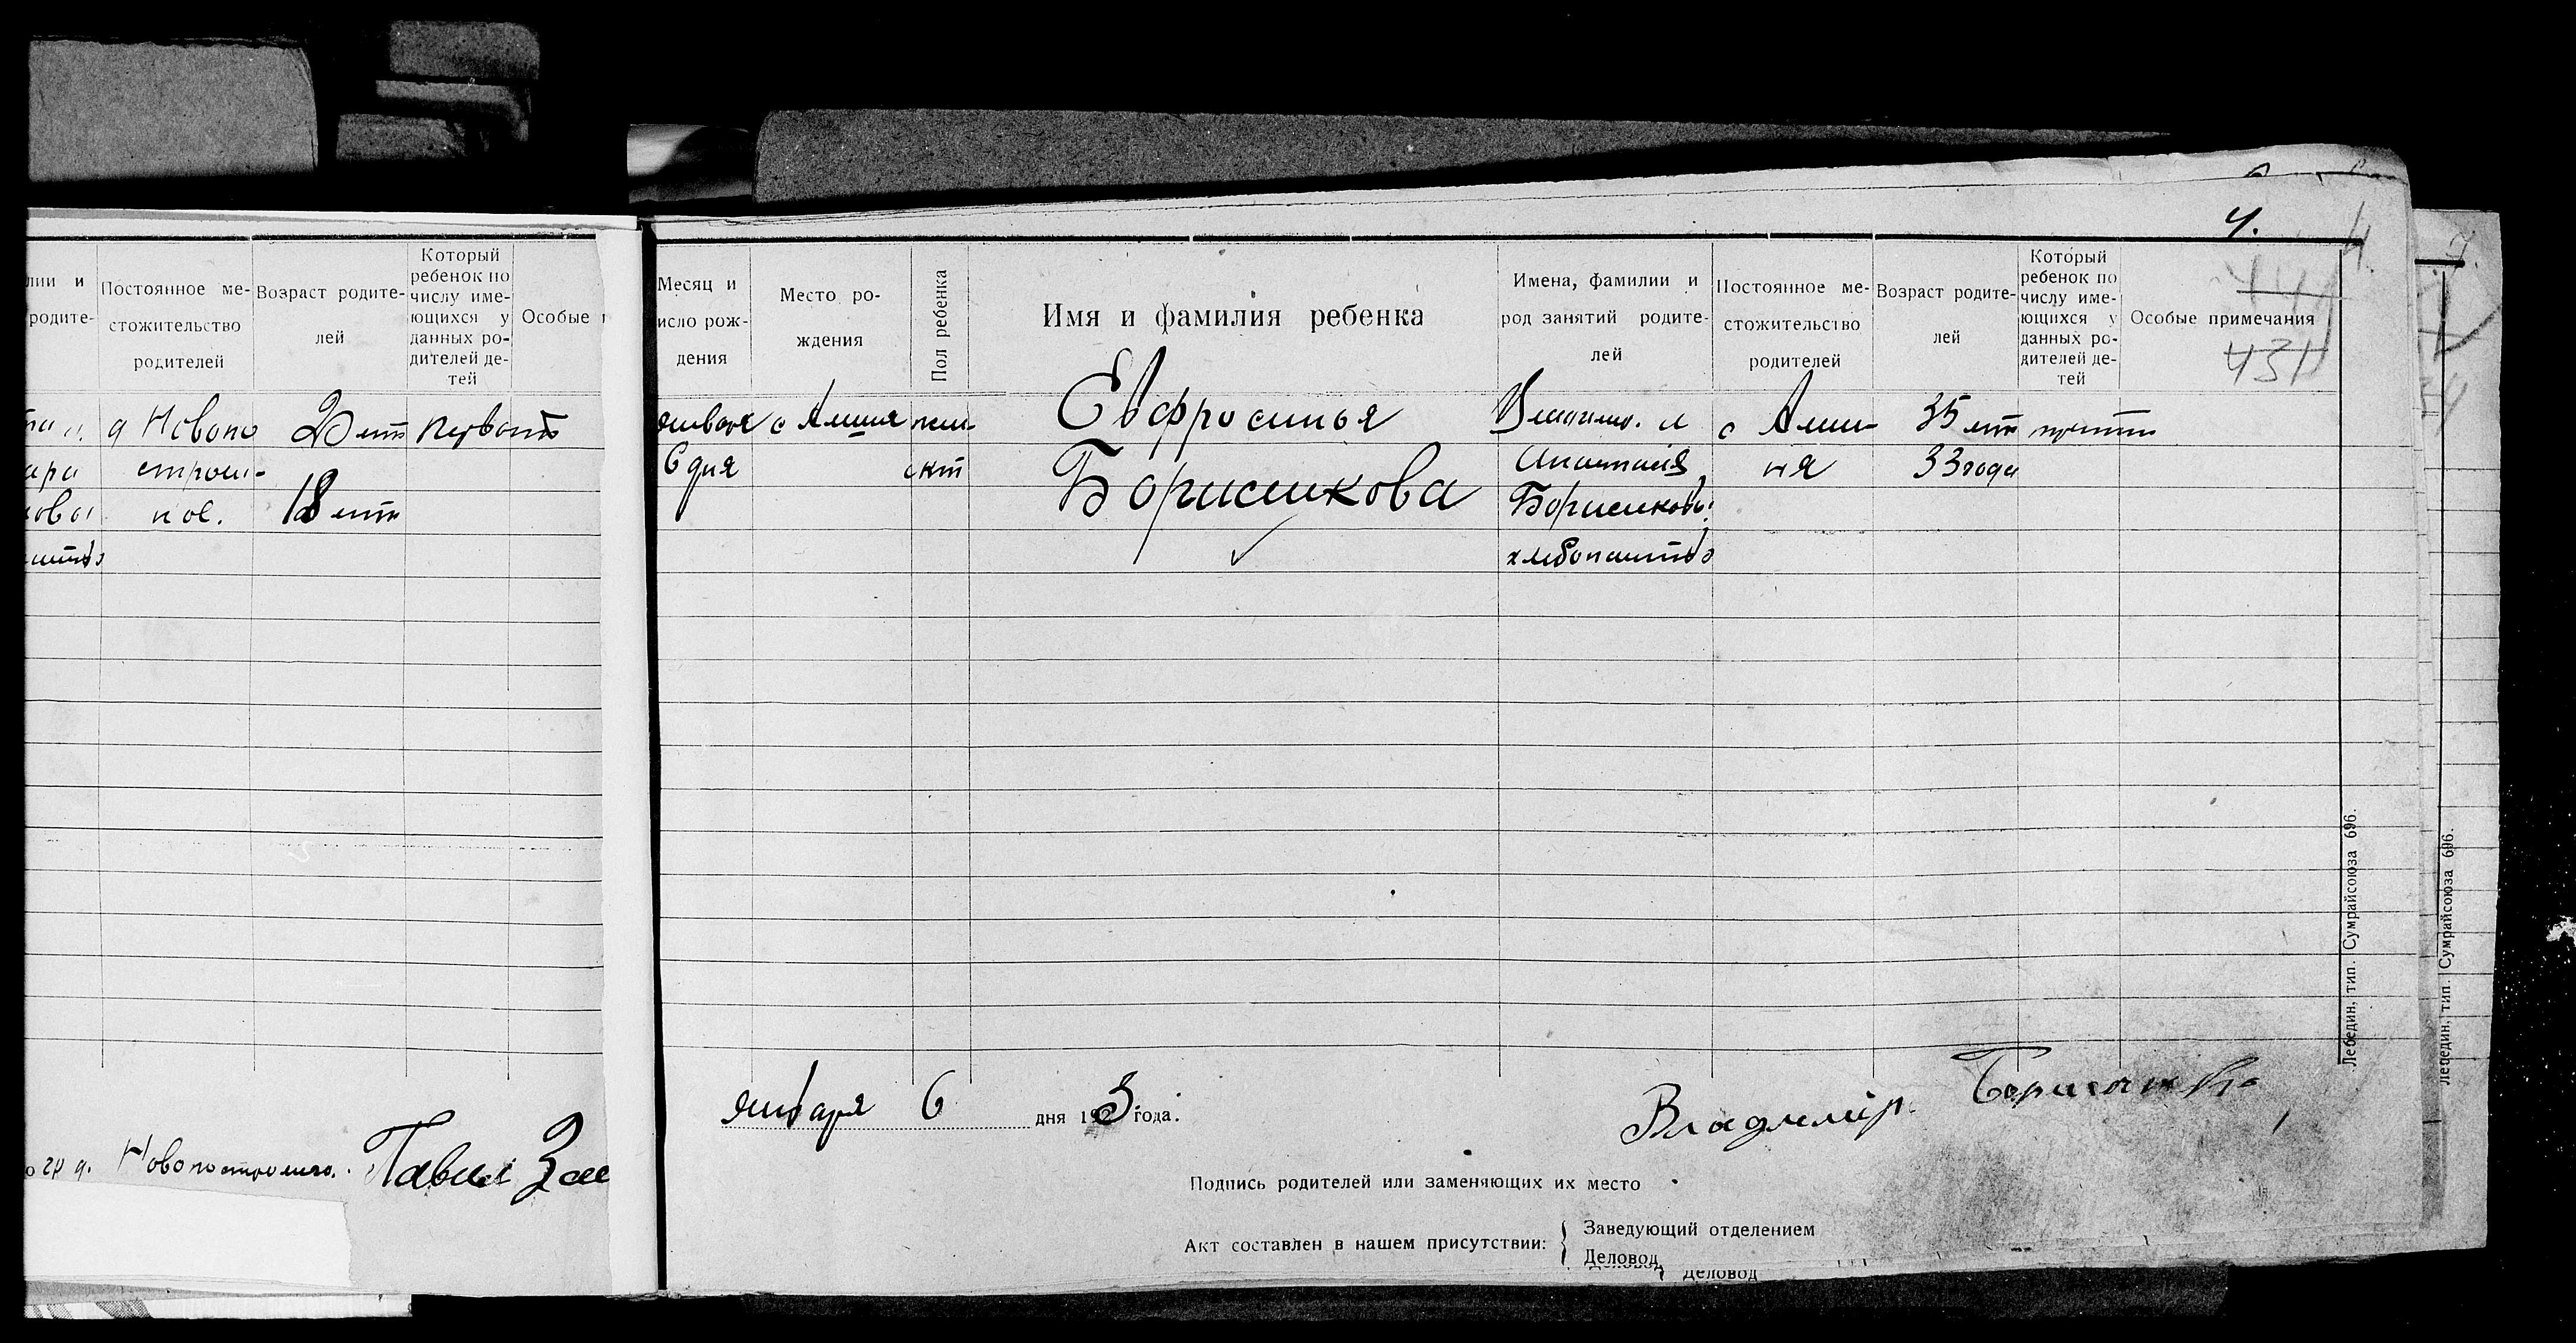 лии и
родите-
Постоянное ме-
стожительство
родителей
Возраст родите-
лей
Который
ребенок по
числу име-
ющихся у
данных ро-
дителей де-
тей
Особые
д Новопо
строш-
ное.
18 лет
Первыт
о гр д. Павел Зап
4.
4
431
Месяц и
исло рож-
дения
Место ро-
ждения
Пол ребенка
Имя и фамилия ребенка
Имена, фамилии и
род занятий родите-
лей
Постоянное ме-
стожительство
родителей
Возраст родите-
лей
Который
ребенок по
числу име-
ющихся у
данных ро-
дителей де-
тей
Особые примечания
января
6 дня
жен-
скт
Евфросинья
Борисенкова
Анастасия
Борисенковы
хлебопашество
35 лет
33 года
января 6 дня 1923 года.
Владимир. Борисенков
Подпись родителей или заменяющих их место
Акт составлен в нашем присутствии:
Заведующий отделением
Деловод
Деловод
Лебедин, тип. Сумрайсоюза 696.
7.
Лебедин, тип. Сумрайсоюза 696.